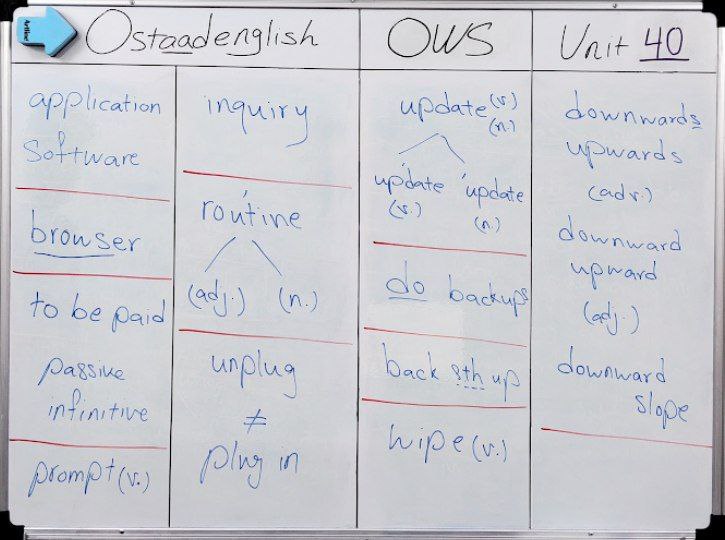 Ostaadenglish
OWS
Unit 40
application
Software
browser
to be paid
passive
infinitive
prompt (v.)
inquiry
routine
(adj.) (n.)
unplug
≠
plug in
update (v.)
(n.)
up'date 'update
(v.) (n.)
do backups
back sth up
wipe (v.)
downwards
upwards
(adv.)
downward
upward
(adj.)
downward
slope